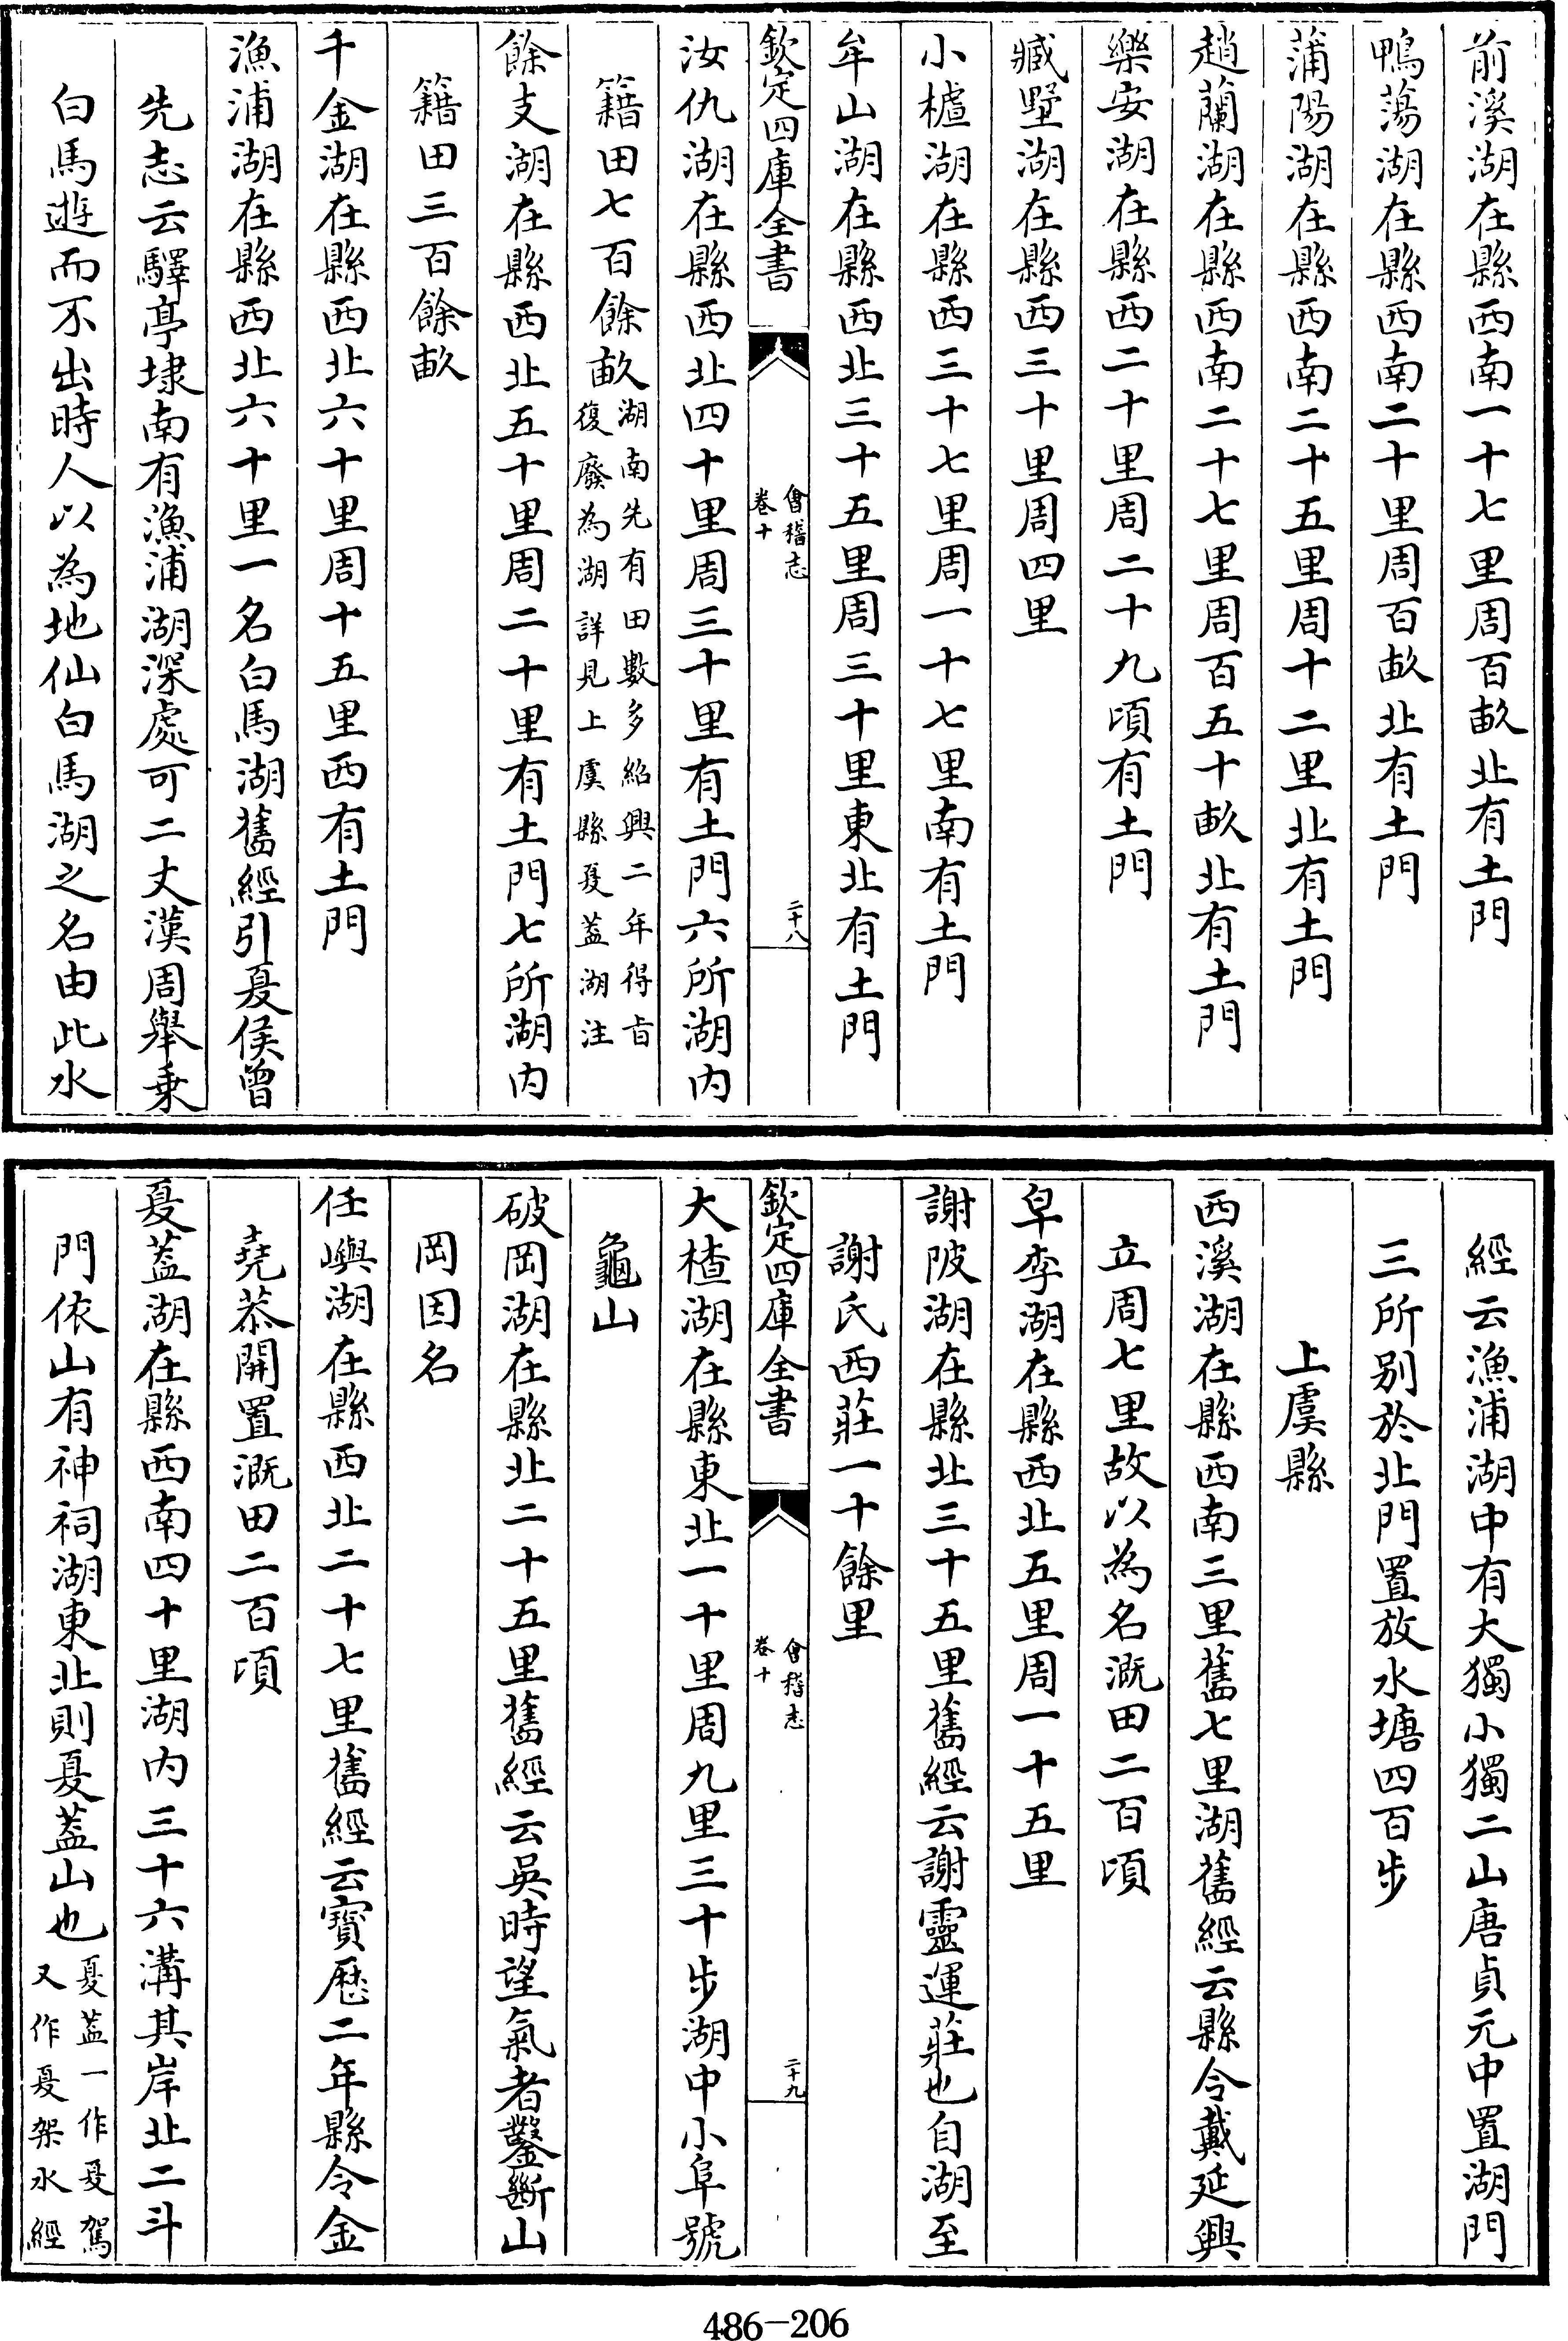 前溪湖在縣西南一十七里周百畝北有土門
鴨蕩湖在縣西南二十里周百畝北有土門
蒲陽湖在縣西南二十五里周十二里北有土門
趙蘭湖在縣西南二十七里周百五十畝北有土門
樂安湖在縣西二十里周二十九頃有土門
臧墅湖在縣西三十里周四里
小櫨湖在縣西三十七里周一十七里南有土門
牟山湖在縣西北三十五里周三十里東北有土門
欽定四庫全書
會稽志
卷十
二十八
汝仇湖在縣西北四十里周三十里有土門六所湖内
籍田七百餘畝湖南先有田數多紹興二年得㫖
復廢為湖詳見上虞縣夏葢湖注
餘支湖在縣西北五十里周二十里有土門七所湖内
籍田三百餘畝
千金湖在縣西北六十里周十五里西有土門
漁浦湖在縣西北六十里一名白馬湖舊經引夏侯曾
先志云驛亭埭南有漁浦湖深處可二丈漢周舉乗
白馬遊而不出時人以為地仙白馬湖之名由此水
經云漁浦湖中有大獨小獨二山唐貞元中置湖門
三所别於北門置放水塘四百步
上虞縣
西溪湖在縣西南三里舊七里湖舊經云縣令戴延興
立周七里故以為名溉田二百頃
皁李湖在縣西北五里周一十五里
謝陂湖在縣北三十五里舊經云謝靈運莊也自湖至
謝氏西莊一十餘里
欽定四庫全書
會稽志
卷十
二十九
大楂湖在縣東北一十里周九里三十步湖中小阜號
龜山
破岡湖在縣北二十五里舊經云吳時望氣者鑿斷山
岡因名
任嶼湖在縣西北二十七里舊經云寳厯二年縣令金
堯恭開置溉田二百頃
夏葢湖在縣西南四十里湖内三十六溝其岸北二斗
門依山有神祠湖東北則夏葢山也夏葢一作夏駕
又作夏架水經
486-206